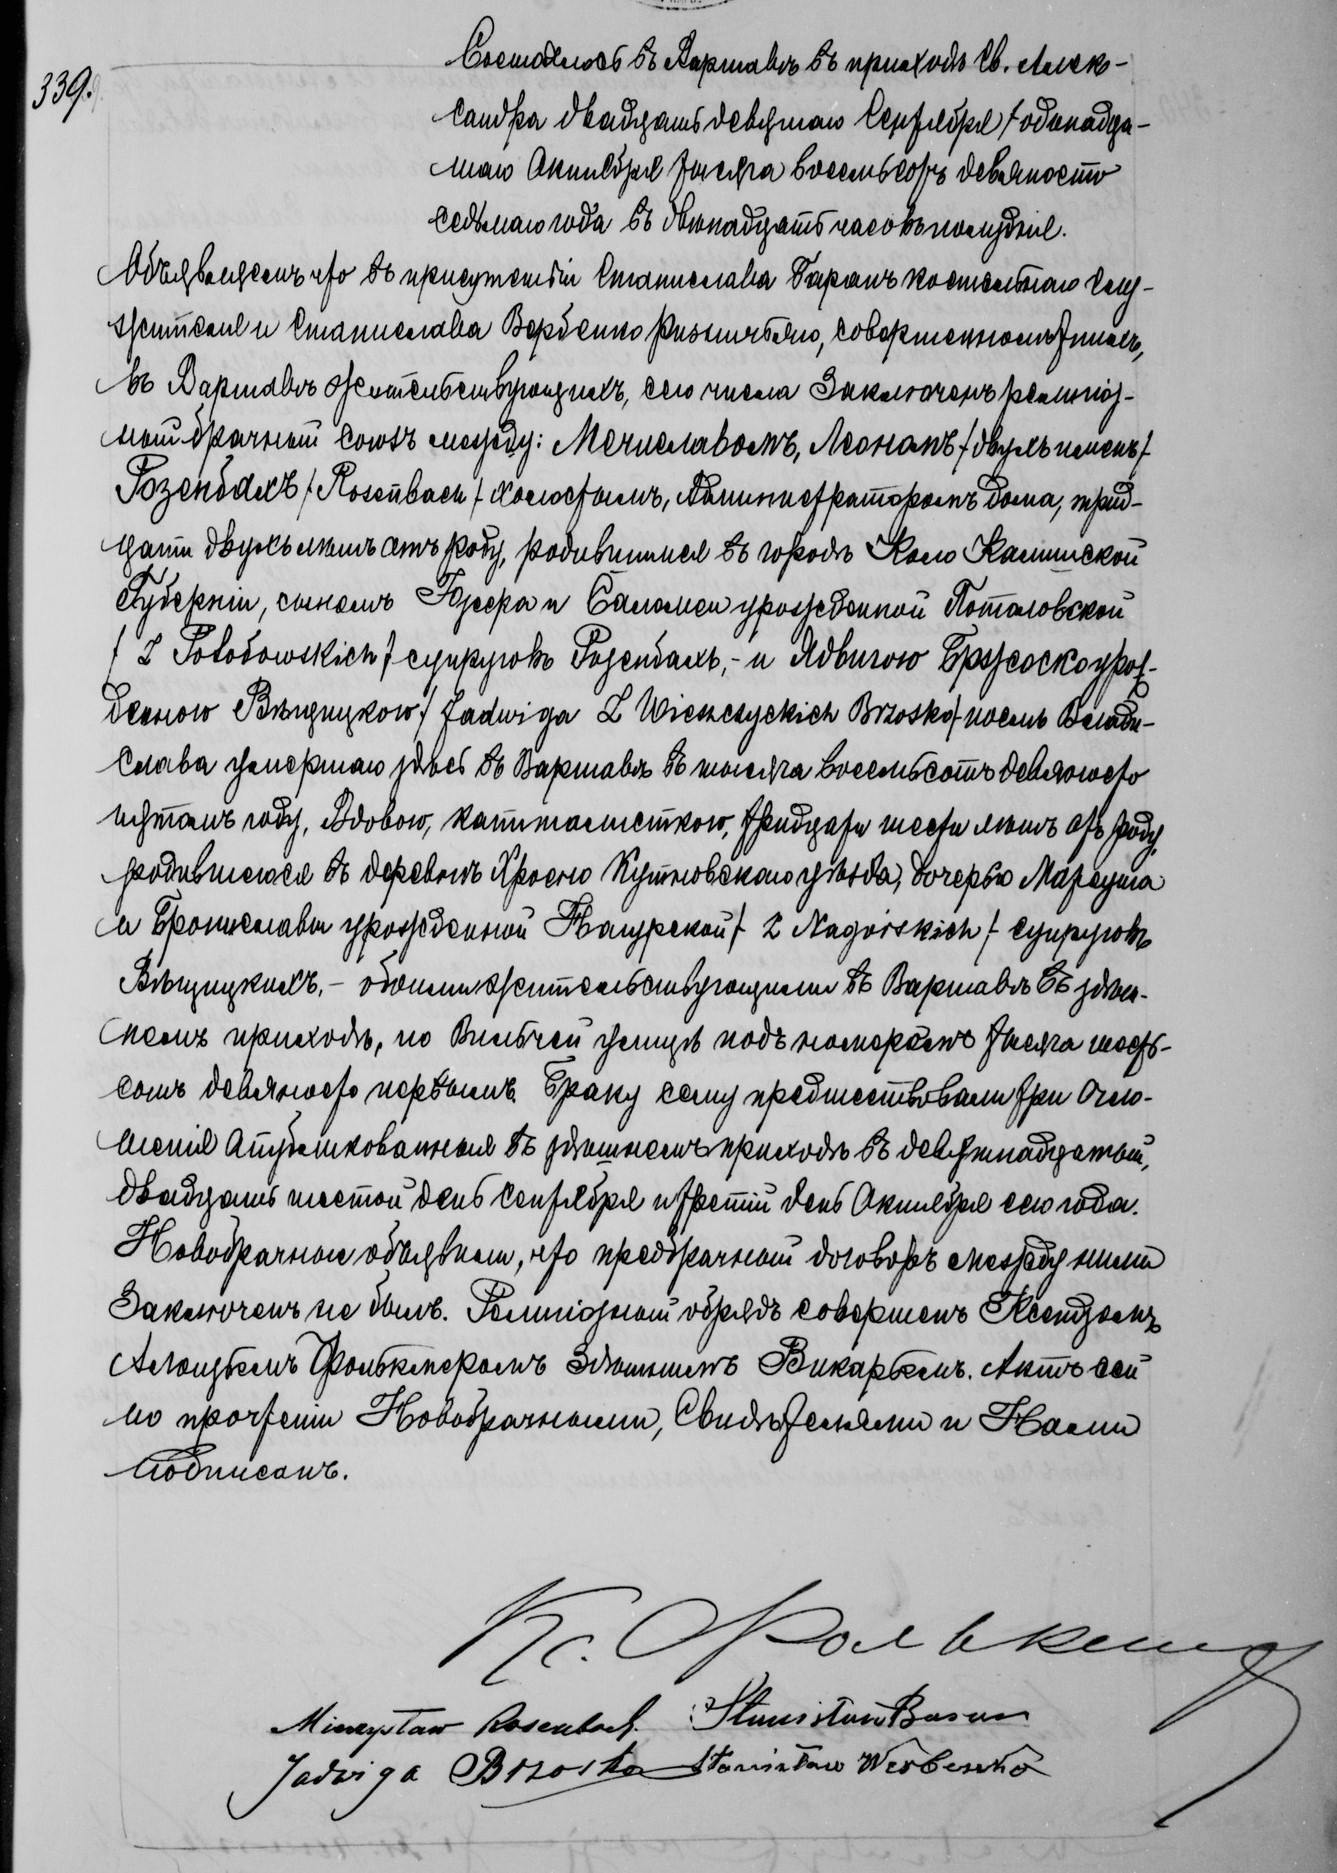 339.
Состоялось въ Варшавѣ въ приходѣ Св. Алек-
сандра двадцать девятаго Сентября / одинадца-
таго Октября тысяча восемьсотъ девяносто
седьмаго года въ двѣнадцать часовъ полудня.
Объявляемъ что въ присутствіи Станислава Баранъ костельнаго слу-
жителя и Станислава Вербенко ризничьяго, совершеннолѣтнихъ,
въ Варшавѣ жительствующихъ, сего числа заключенъ религіоз-
ный брачный союзъ между: Мечиславомъ, Леономъ / двухъ именъ /
Розенбахъ / Rosenbach / холостымъ, Администраторомъ дома, трид-
цати двухъ лѣтъ отъ роду, родившимся въ городѣ Коло Калишской
Губерніи, сыномъ и Саломеи урожденной
/ z / супруговъ Розенбахъ, - и Ядвигою Бржоско урож-
денною / Jadwiga z Brzosko / послѣ Влади-
слава умершаго здѣсь въ Варшавѣ въ тысяча восемьсотъ девяносто
пятомъ году, Вдовою, капиталисткою, тридцати шести лѣтъ отъ роду,
родившеюся въ деревнѣ Кутновскаго уѣзда, дочерью
и Брониславы урожденной Нагурской / z Nagórskich / супруговъ
- обоими жительствующими въ Варшавѣ въ здѣш-
немъ приходѣ, по Вильчей улицѣ подъ номеромъ тысяча шесть-
сотъ девяносто первымъ. Браку сему предшествовали три огла-
шенія опубликованныя въ здѣшнемъ приходѣ въ девятнадцатый,
двадцать шестой день Сентября и третій день Октября сего года.
Новобрачные объявили, что предбрачный договоръ между ними
заключенъ не былъ. Религіозный обрядъ совершенъ Ксендзомъ
Алоизіемъ здѣшнимъ Викаріемъ. Актъ сей
по прочтеніи Новобрачными, Свидѣтелями и Нами
подписанъ.
Кс.
Mieczysław Rosenbach. Stanisław Baran
Jadwiga Brzosko Stanisław Werbenko